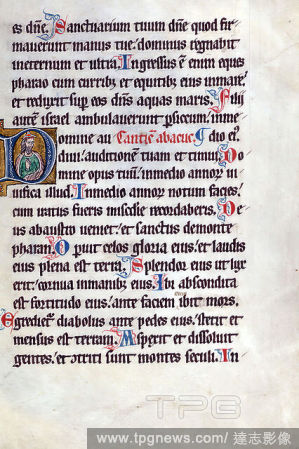 es dñe. Sanctuarium tuum dñe quod fir
mauerunt manus tue: dominus regnabit
ineternum et ultra. Ingressus ē enim eques
pharao cum curribꝫ et equitibꝫ eius inmare:
et reduxit sup eos dñs aquas maris. Filij
autē israel ambulauerunt p siccum: inme
Domine au Canticū abacuc. dio ei:
diui auditionē tuam et timui. Do
mine opus tuū: inmedio annoꝝ ui
uifica illud. Inmedio annoꝝ notum facies:
cum iratus fueris misc̄die recordaberis. De
us abaustro ueniet: et sanctus demonte
pharan. Operuit celos gloria eius: et laudis
eius plena est terra. Splendor eius ut lux
erit: cornua inmanibꝫ eius. Ibi abscondita
est fortitudo eius: ante faciem ibit mors.
Egredietˀ diabolus ante pedes eius: stetit et
mensus est terram. Aspexit et dissoluit
gentes: et ɔtriti sunt montes seculi. In
TPG
www.tpgnews.com/達志影像